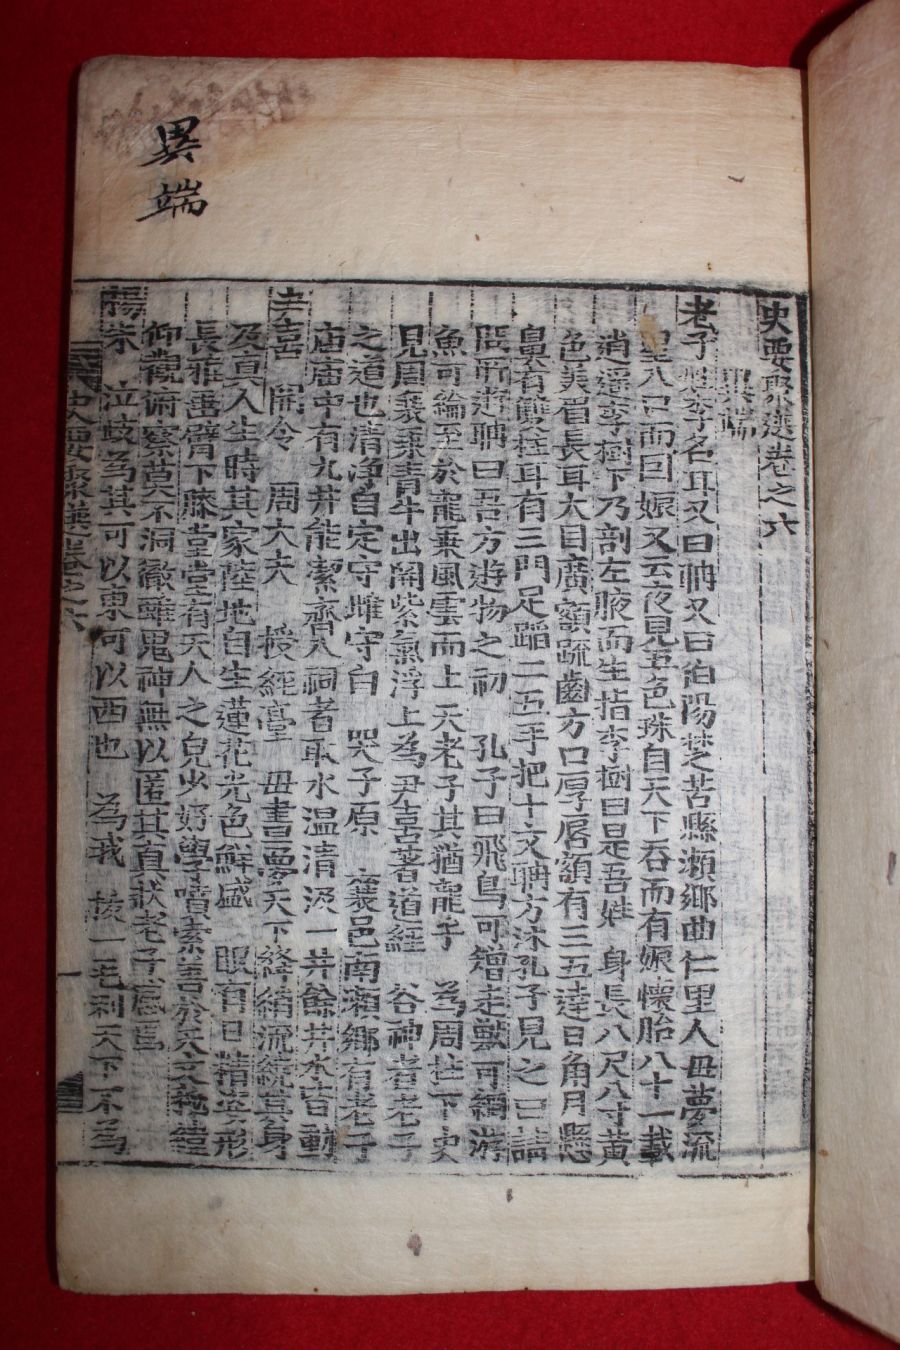 異端
史要聚選卷之六
異端
老子姓李名耳又曰聃又曰伯陽楚苦縣瀨鄉曲仁里人母夢流
星入口而曰娠又云夜見五色珠自天下吞而有娠懷胎八十一載
逍遙李樹下乃剖左腋而生指李樹曰是吾姓 身長八尺八寸黃
色美眉長耳大目廣額疏齒方口厚唇額有三五達日角月懸
鼻有雙柱耳有三門足蹈二五手把十文聃方沐孔子見之曰請
聃曰吾方遊物之初 孔子曰飛鳥可矰走獸可網游
魚可綸至於龍乘風雲而上天老子其猶龍乎 為周柱下史
見周衰乘青牛出關紫氣浮上為尹喜著道經 谷神者老子
之道也清淨自定守雌守白 哭子原 襄邑南瀨鄉有老子
庙庙中有九井能潔齋入祠者取水温清汲一井餘井水皆動
尹喜 關令 周大夫 授經臺 母晝夢天下絳綃流繞其身
及真人生時其家陸地自生蓮花光色鮮盛 眼有日精姿形
長雅垂臂下膝堂堂有天人之皃少好學墳索善於天文秘緯
仰觀俯察莫不洞徹雖鬼神無以匿其真狀老子感焉
楊朱 泣歧為其可以東可以西也 為我 拔一毛利天下不為
史要聚選卷之六
一